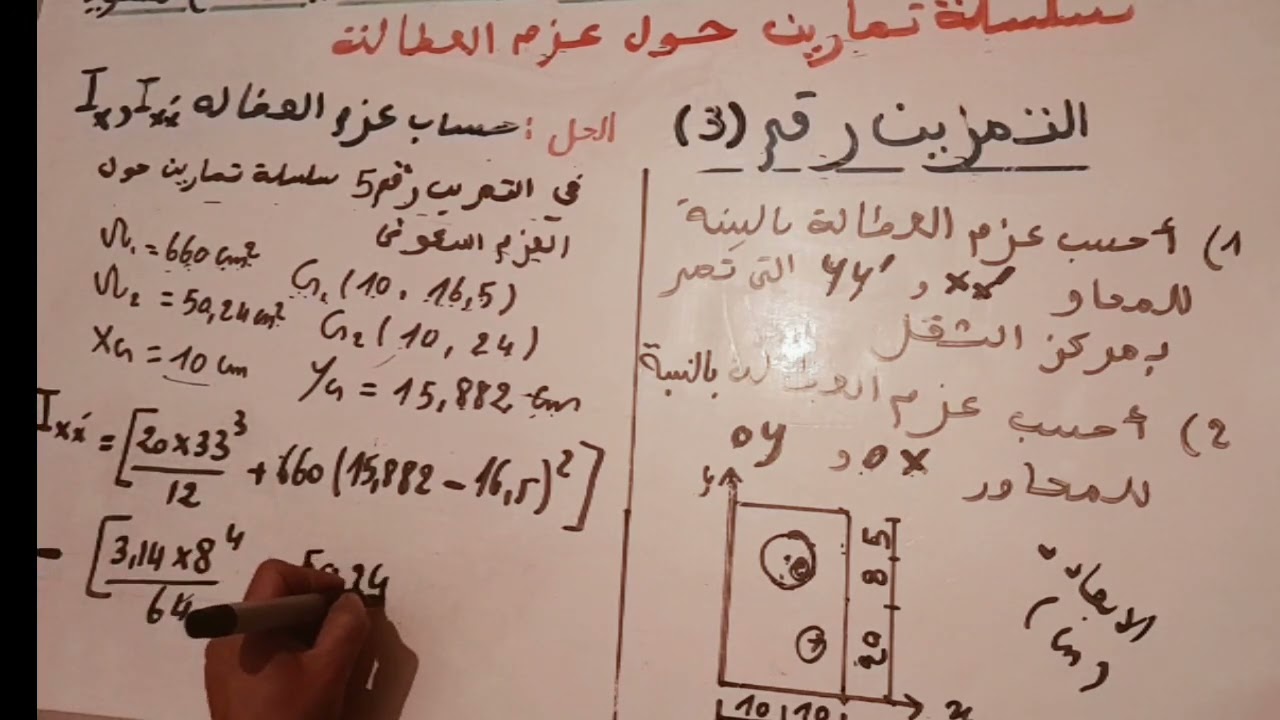 سلسلة تمارين حول عزم العطالة
التمرين رقم (3)
1) أحسب عزم العطالة بالنسبة
للمحاور xx' و yy' التي تمر
بمركز الثقل
2) أحسب عزم العطالة بالنسبة
للمحاور ox و oy
y
5
8
20
10 10
x
الأبعاد بـ
الحل : حساب عزم العطالة Ixx' و Ix
في التمرين رقم 5 سلسلة تمارين حول
العزم السكوني
Ω1 = 660 cm²
Ω2 = 50,24 cm²
G1 (10, 16,5)
G2 (10, 24)
XG = 10 cm
YG = 15,882 cm
Ixx' = [20×33³/12 + 660(15,882 − 16,5)²]
− [3,14×8⁴/64 50,24